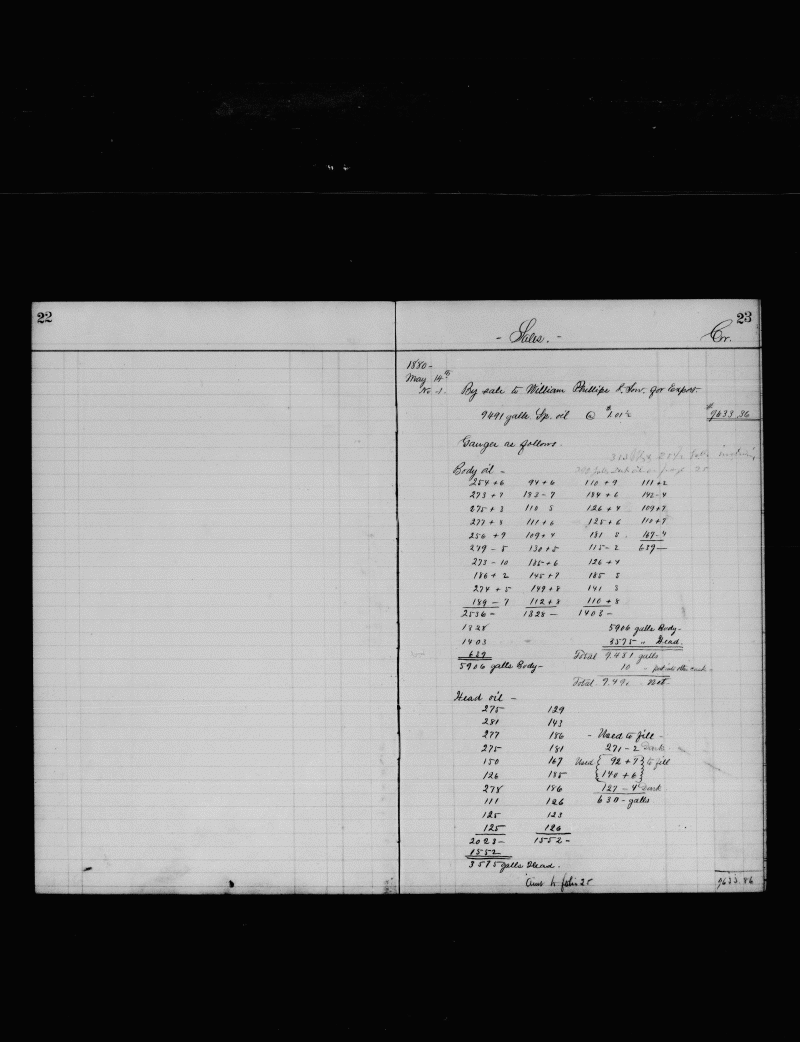 22
23
- Sales. -
Cr.
1880-
May 14th
No. 1. By sale to William Phillips & Son. for Export-
9491 galls. Sp. oil @ $1.01½ $9633.36
Gauger as follows.
Body oil -
254+6 94+6 110+9 111+2
273+7 183-7 184+6 142-4
275+3 110 S 126+4 109+7
277+8 111+6 125+6 110+7
256+9 109+4 181 S 167-4
279-5 130+5 115-2 639-
273-10 185+6 126+4
186+2 145+7 185 S
274+5 149+8 141 S
189-7 112+8 110+8
2536- 1328- 1403-
1328 5906 galls Body-
1403 3575 " Head.
639 Total 9481 galls
5906 galls Body- 10 - put into other cask-
Total. 9491 Net-
Head oil -
275 129
281 143
277 186 - Used to fill -
275 181 271-2 Dark
150 167 Used { 92+7 } to fill
126 185 { 140+6 }
278 186 127-4 Dark
111 126 630-galls
125 123
125 126
2023- 1552-
1552
3575 galls Head.
Amt to folio 25 9633.36